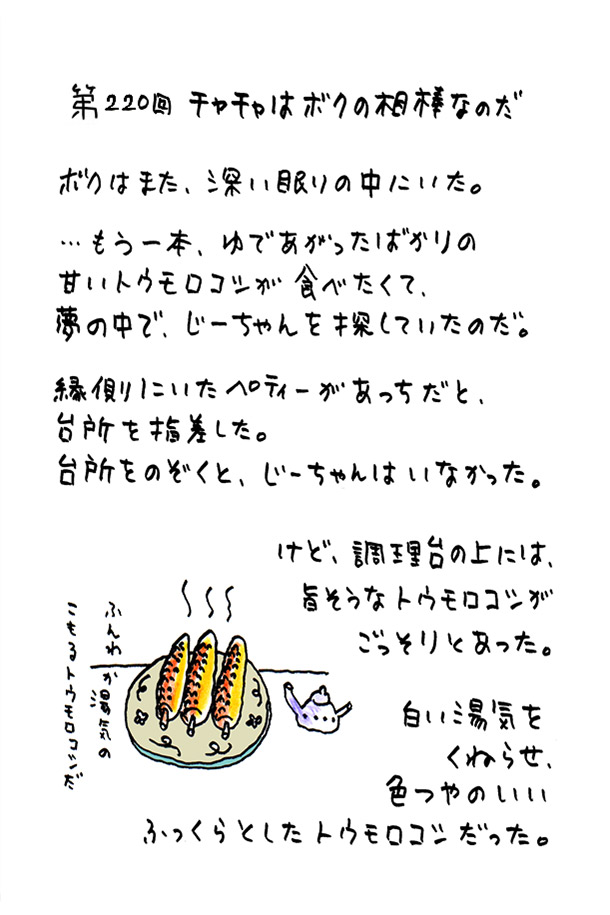 第220回 チャチャはボクの相棒なのだ
ボクはまた、深い眠りの中にいた。
…もう一本、ゆであがったばかりの
甘いトウモロコシが食べたくて、
夢の中で、じーちゃんを探していたのだ。
縁側にいたペティーがあっちだと、
台所を指差した。
台所をのぞくと、じーちゃんはいなかった。
けど、調理台の上には、
旨そうなトウモロコシが
ごっそりとあった。
ふんわか湯気の
こもるトウモロコシだ
白い湯気を
くねらせ、
色つやのいい
ふっくらとしたトウモロコシだった。